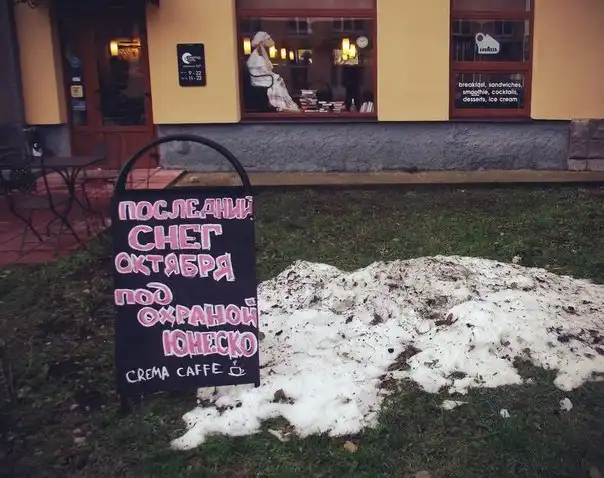 9-22
11-22
breakfast, sandwiches,
smoothie, cocktails,
desserts, ice cream
ПОСЛЕДНИЙ
СНЕГ
ОКТЯБРЯ
ПОД
ОХРАНОЙ
ЮНЕСКО
CREMA CAFFE